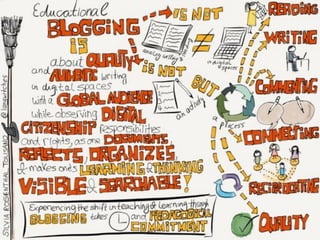 Educational
BLOGGING
IS
about QUALITY
and AUTHENTIC writing
in digital spaces
with a GLOBAL AUDIENCE
while observing DIGITAL
CITIZENSHIP responsibilities
and rights, as one DOCUMENTS
REFLECTS, ORGANIZES
& makes one's LEARNING & THINKING
VISIBLE & SEARCHABLE!
Experiencing the shift in teaching & learning through
BLOGGING takes and PEDAGOGICAL
COMMITMENT
SILVIA ROSENTHAL TOLISANO @langwitches
IS NOT
analog writing
=
in digital spaces
IS NOT
an activity
BUT
a process
READING
WRITING
COMMENTING
CONNECTING
RECIPROCATING
QUALITY